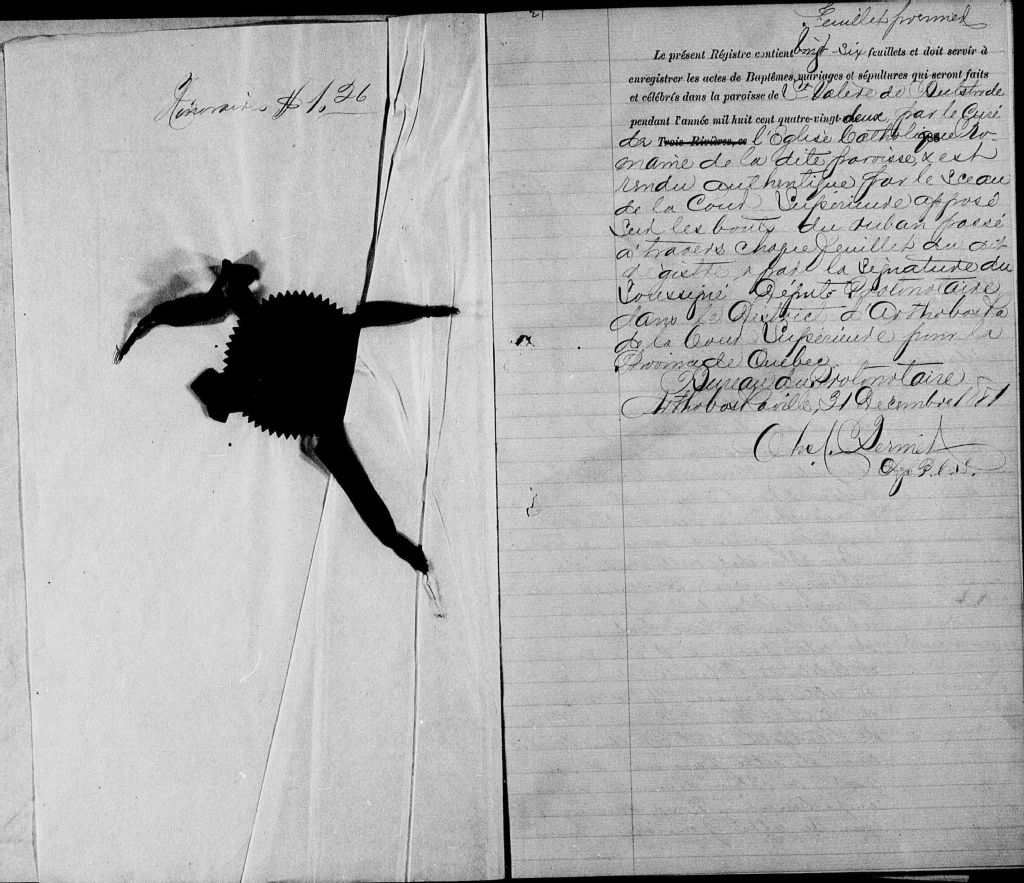 Honoraires $1,26
Feuillet premier
Le présent Régistre contient vingt-six feuillets et doit servir à
enregistrer les actes de Baptêmes, mariages et sépultures qui seront faits
et célébrés dans la paroisse de St Valère de Bulstrode
pendant l'année mil huit cent quatre-vingt-deux, par le Curé
de Trois-Rivières, ce l'Eglise Catholique Ro
maine de la dite paroisse & est
rendu authentique par le Sceau
de la Cour Supérieure apposé
sur les bouts du ruban passé
à travers chaque feuillet du dit
régistre, & par la Signature du
Soussigné Député Protonotaire
dans le District d'Arthabaska
de la Cour Supérieure pour la
Province de Québec
Bureau du Protonotaire
Arthabaskaville, 31 Decembre 1881
Chs.